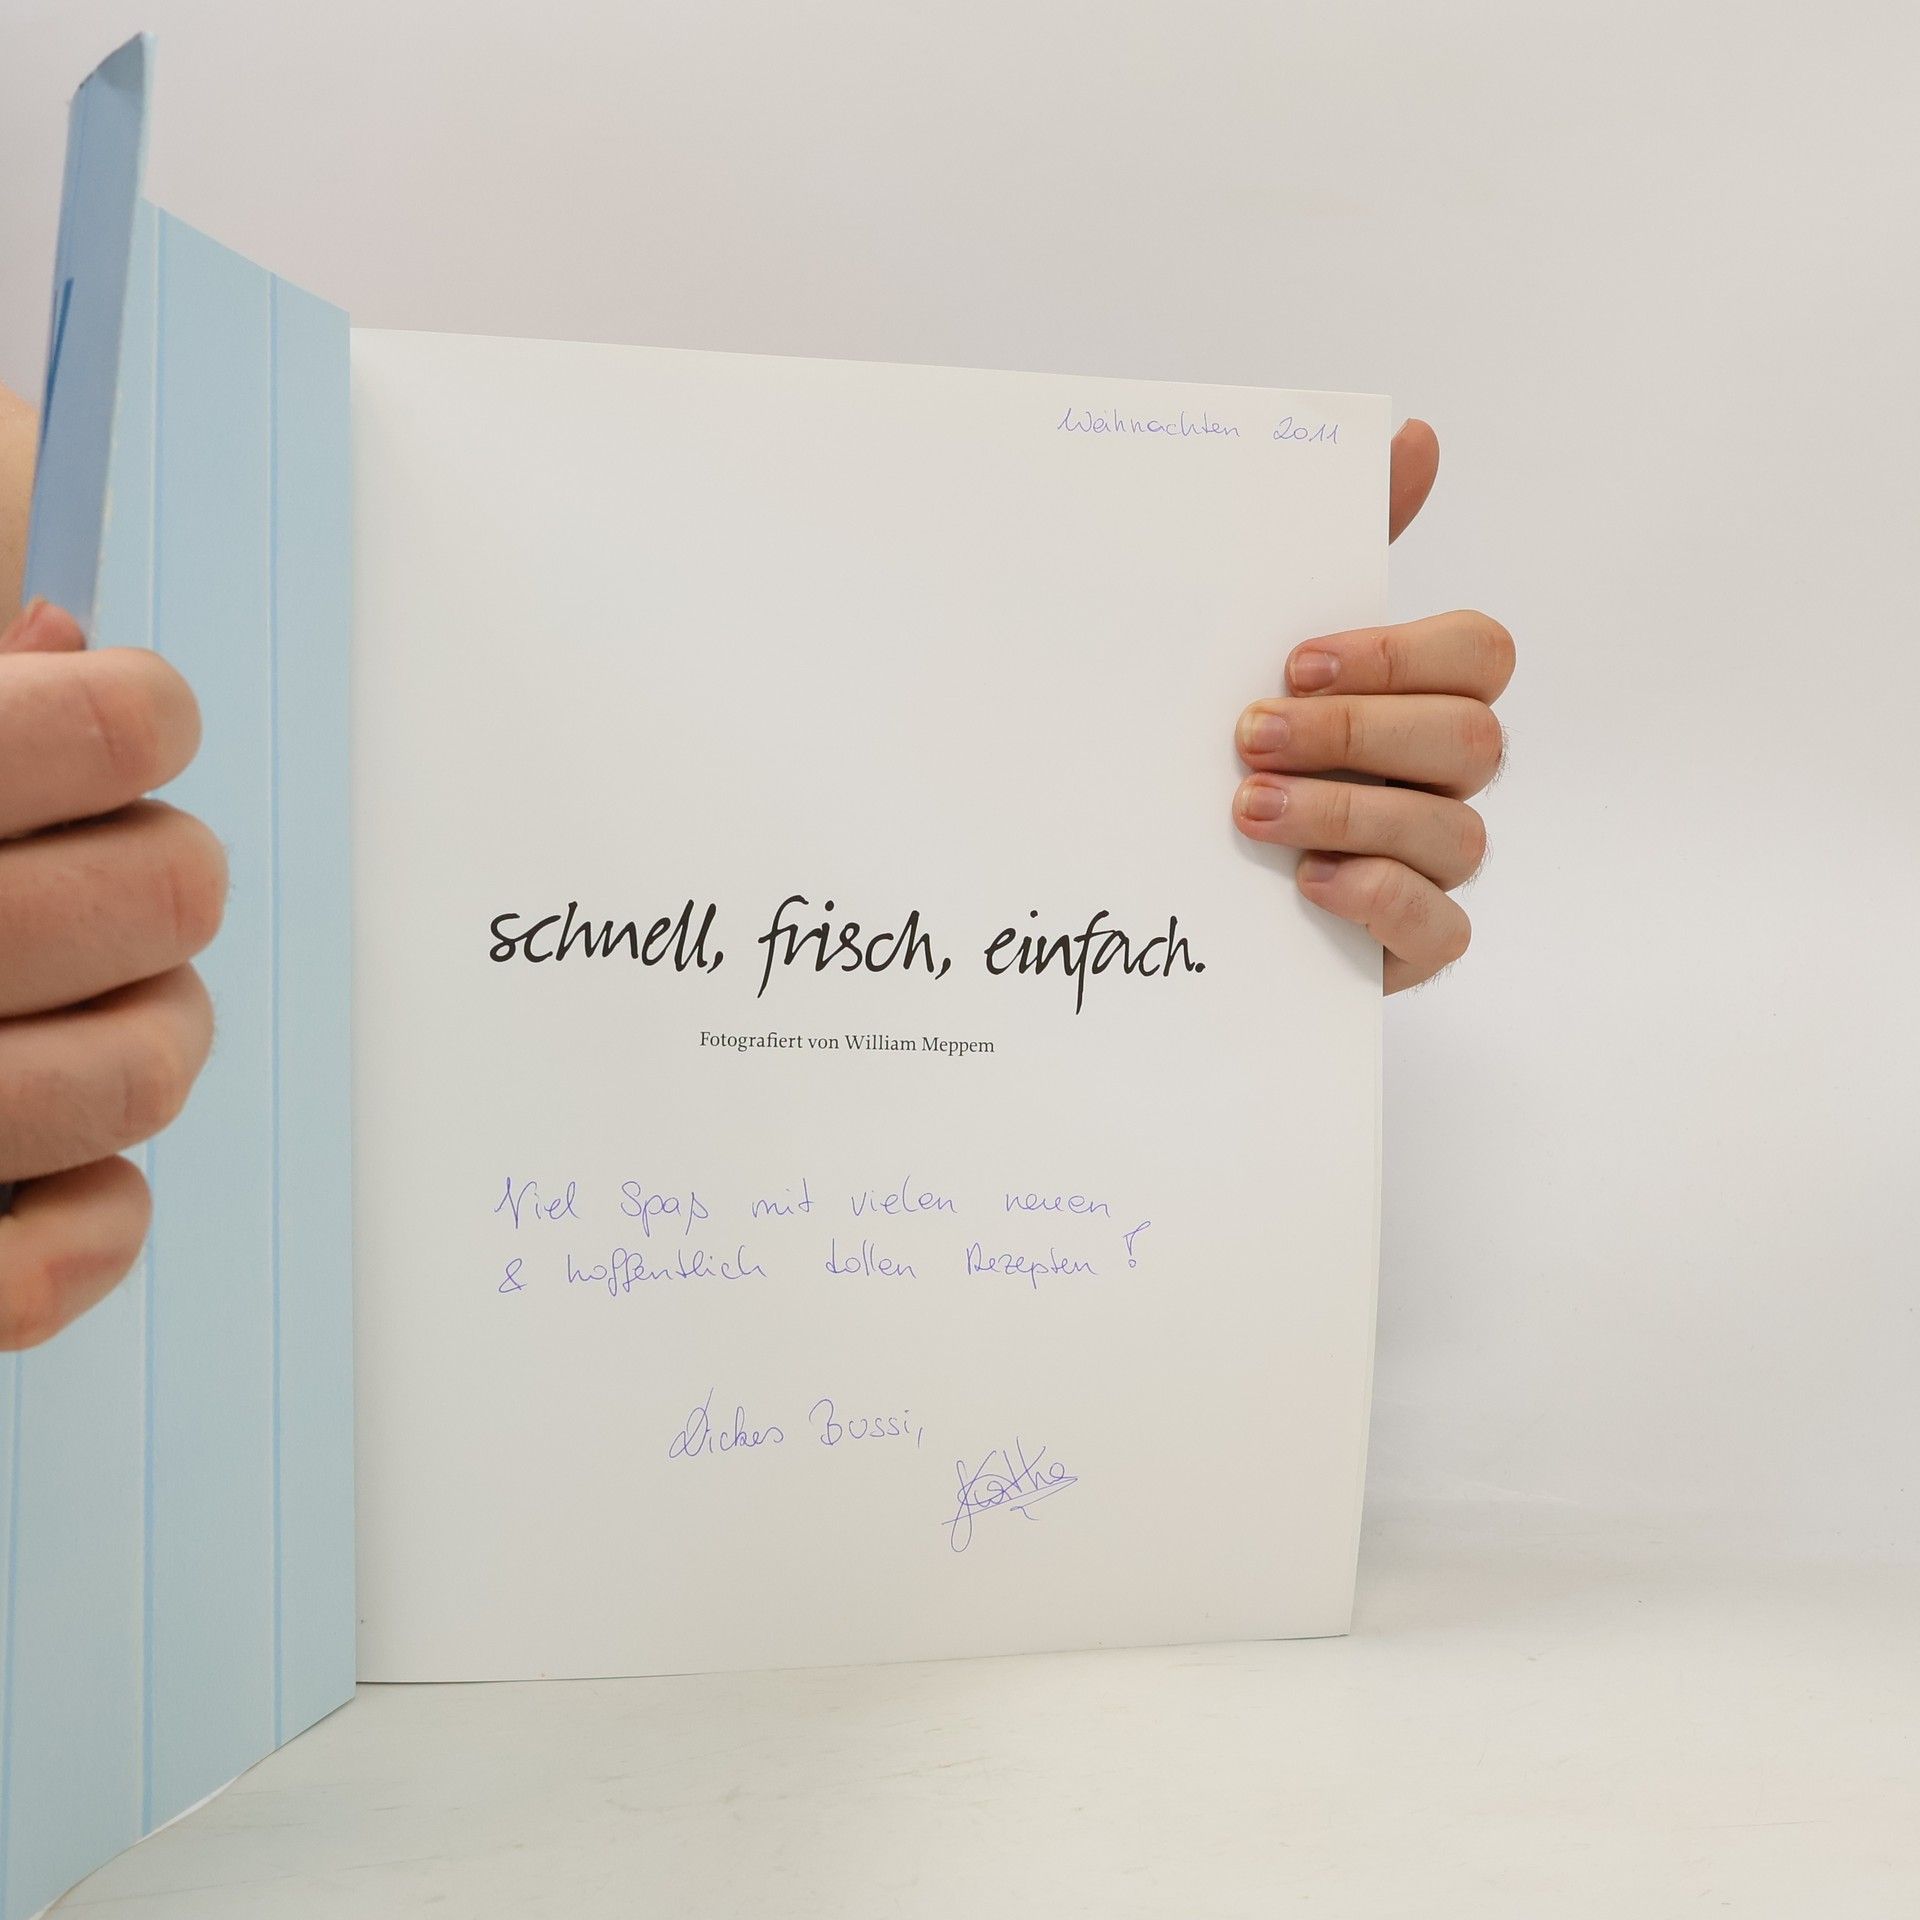 Weihnachten 2011
schnell, frisch, einfach.
Fotografiert von William Meppem
Viel Spaß mit vielen neuen
& hoffentlich tollen Rezepten!
Dickes Bussi,